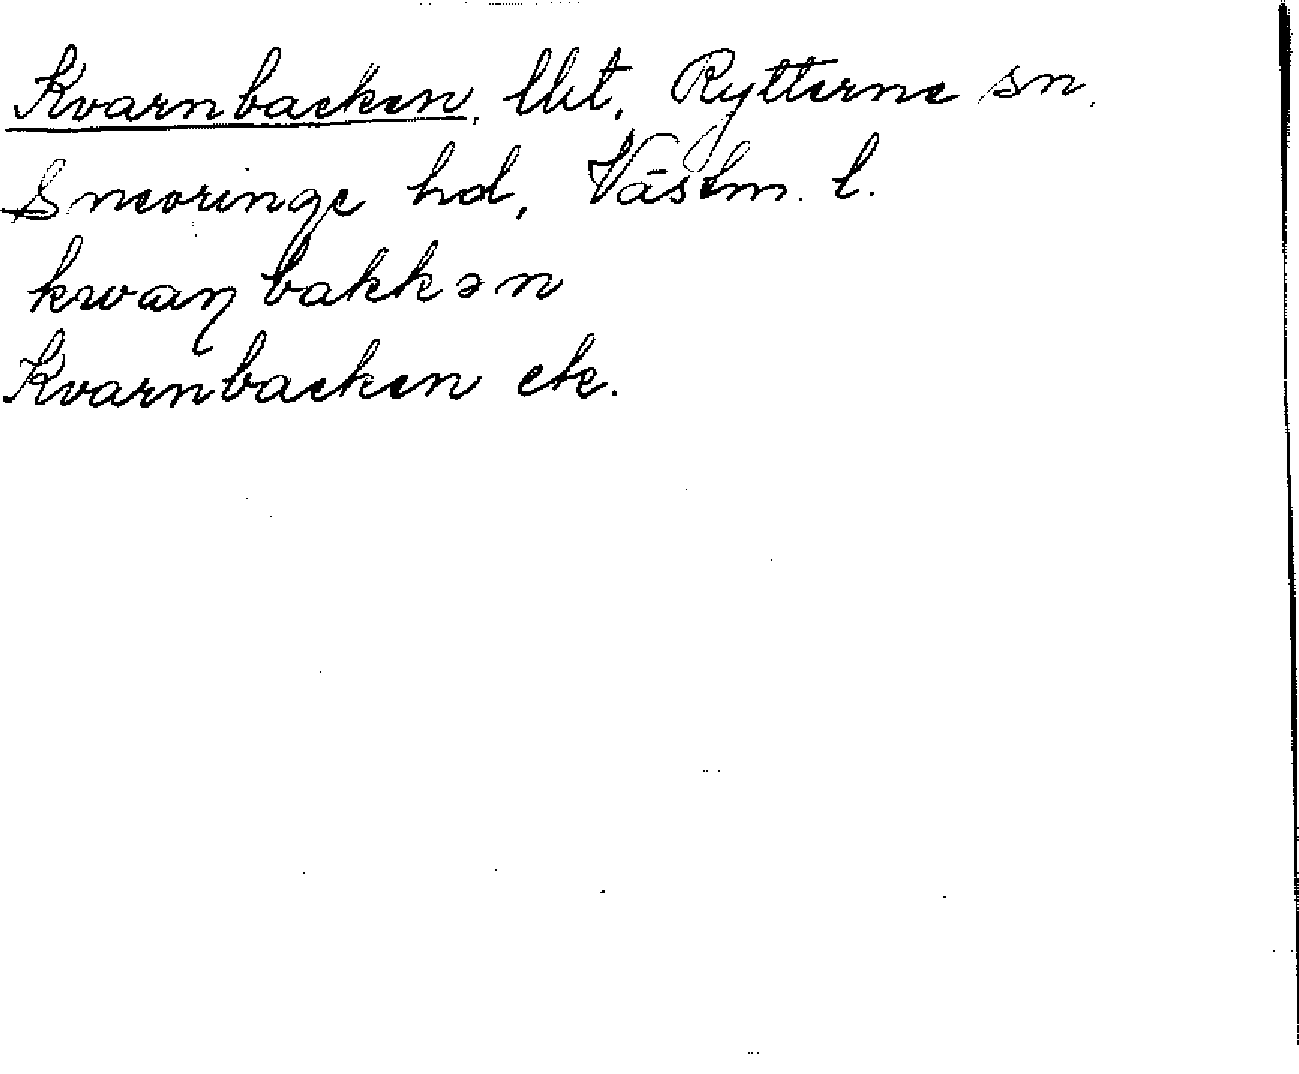 Kvarnbacken, lht, Rytterne sn,
Snevringe hd, Västm. l.
kwaɳbakkən
Kvarnbacken etc.